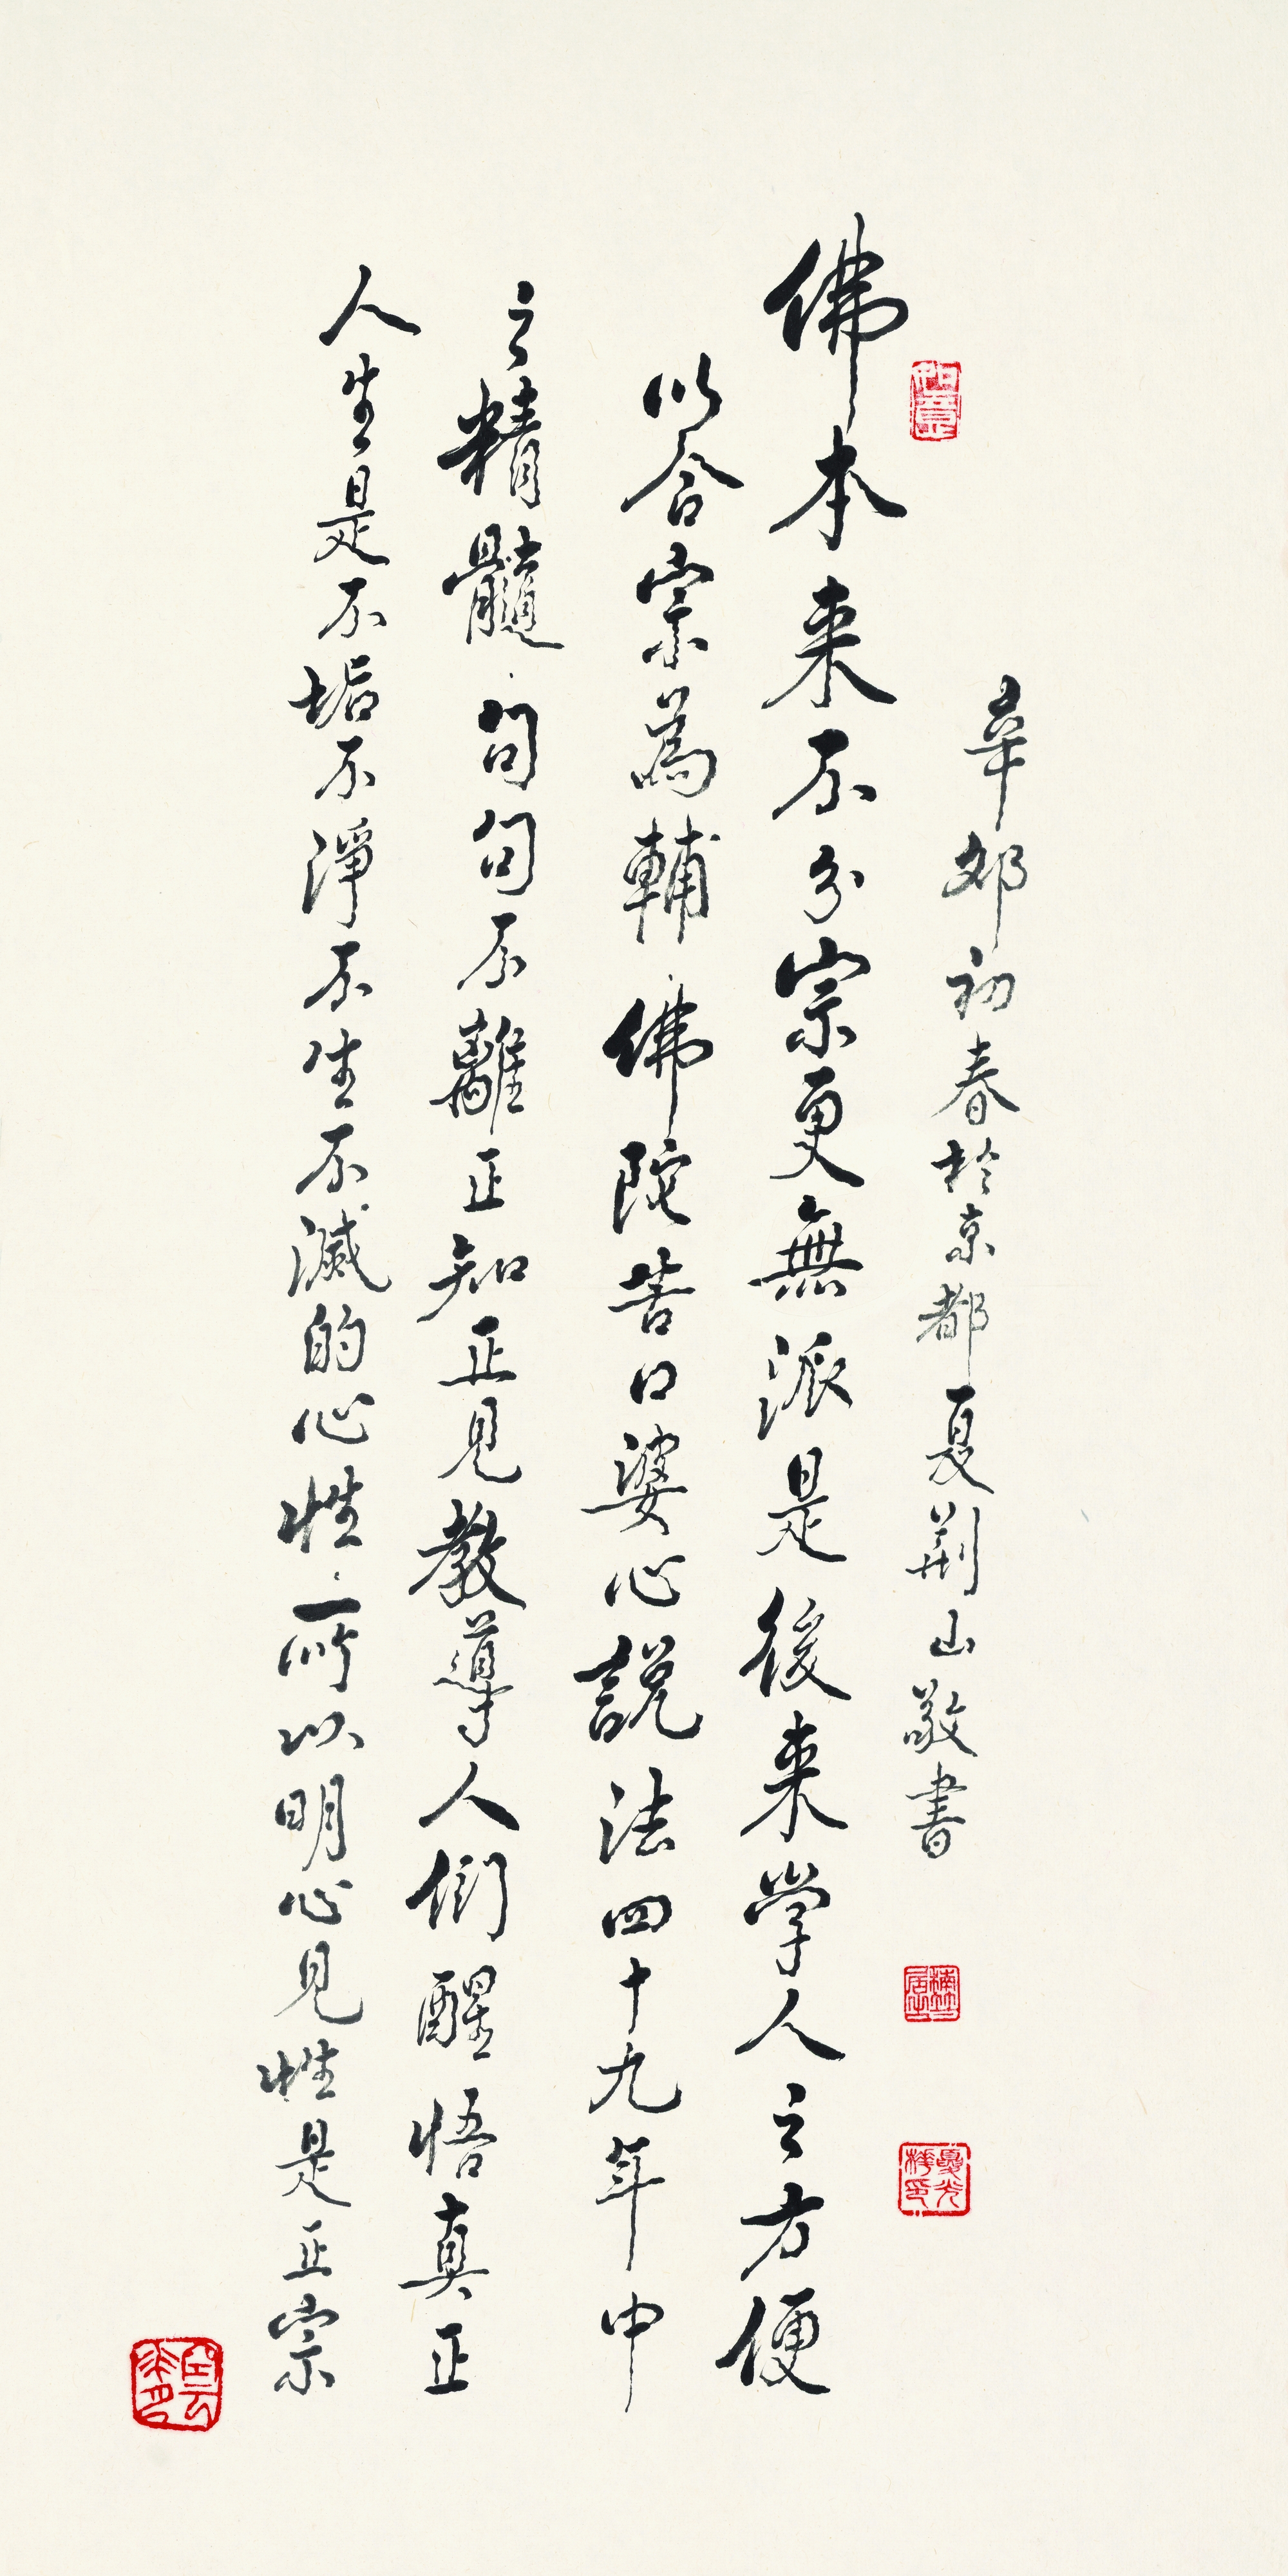 辛卯初春於京都夏荆山敬書
如意
佛本来不分宗更無派是後来学人之方便
以合宗為輔佛陀苦口婆心説法四十九年中
之精髓句句不離正知正見教導人們醒悟真正
人生是不垢不淨不生不滅的心性所以明心見性是正宗